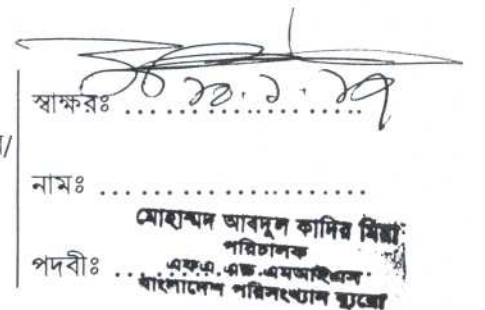 স্বাক্ষরঃ ....................
/
নামঃ ....................
মোহাম্মদ আবদুল কাদির মিয়া
পরিচালক
পদবীঃ ....................
এফএ এন্ড এমআইএস
বাংলাদেশ পরিসংখ্যান ব্যুরো